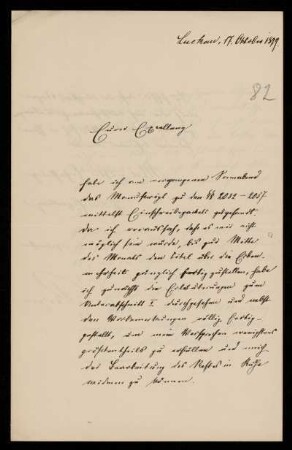 Luckau, 17. Oktober 1899
82
Eurer Excellenz
habe ich am vergangenen Sonnabend
das Manuskript zu den §§ 2032 – 2057
mittelst Einschreibpackets zugesandt.
Da ich voraussah, daß es mir nicht
möglich sein würde, bis zur Mitte
des Monats den Titel über die Erben
mehrheit gänzlich fertig zu stellen, habe
ich zunächst die Erläuterungen zum
Unterabschnitt I durchgesehen und nebst
den Vorbemerkungen völlig fertig
gestellt, um mein Versprechen wenigstens
größtentheils zu erfüllen und mich
der Bearbeitung des Restes in Ruhe
widmen zu können.